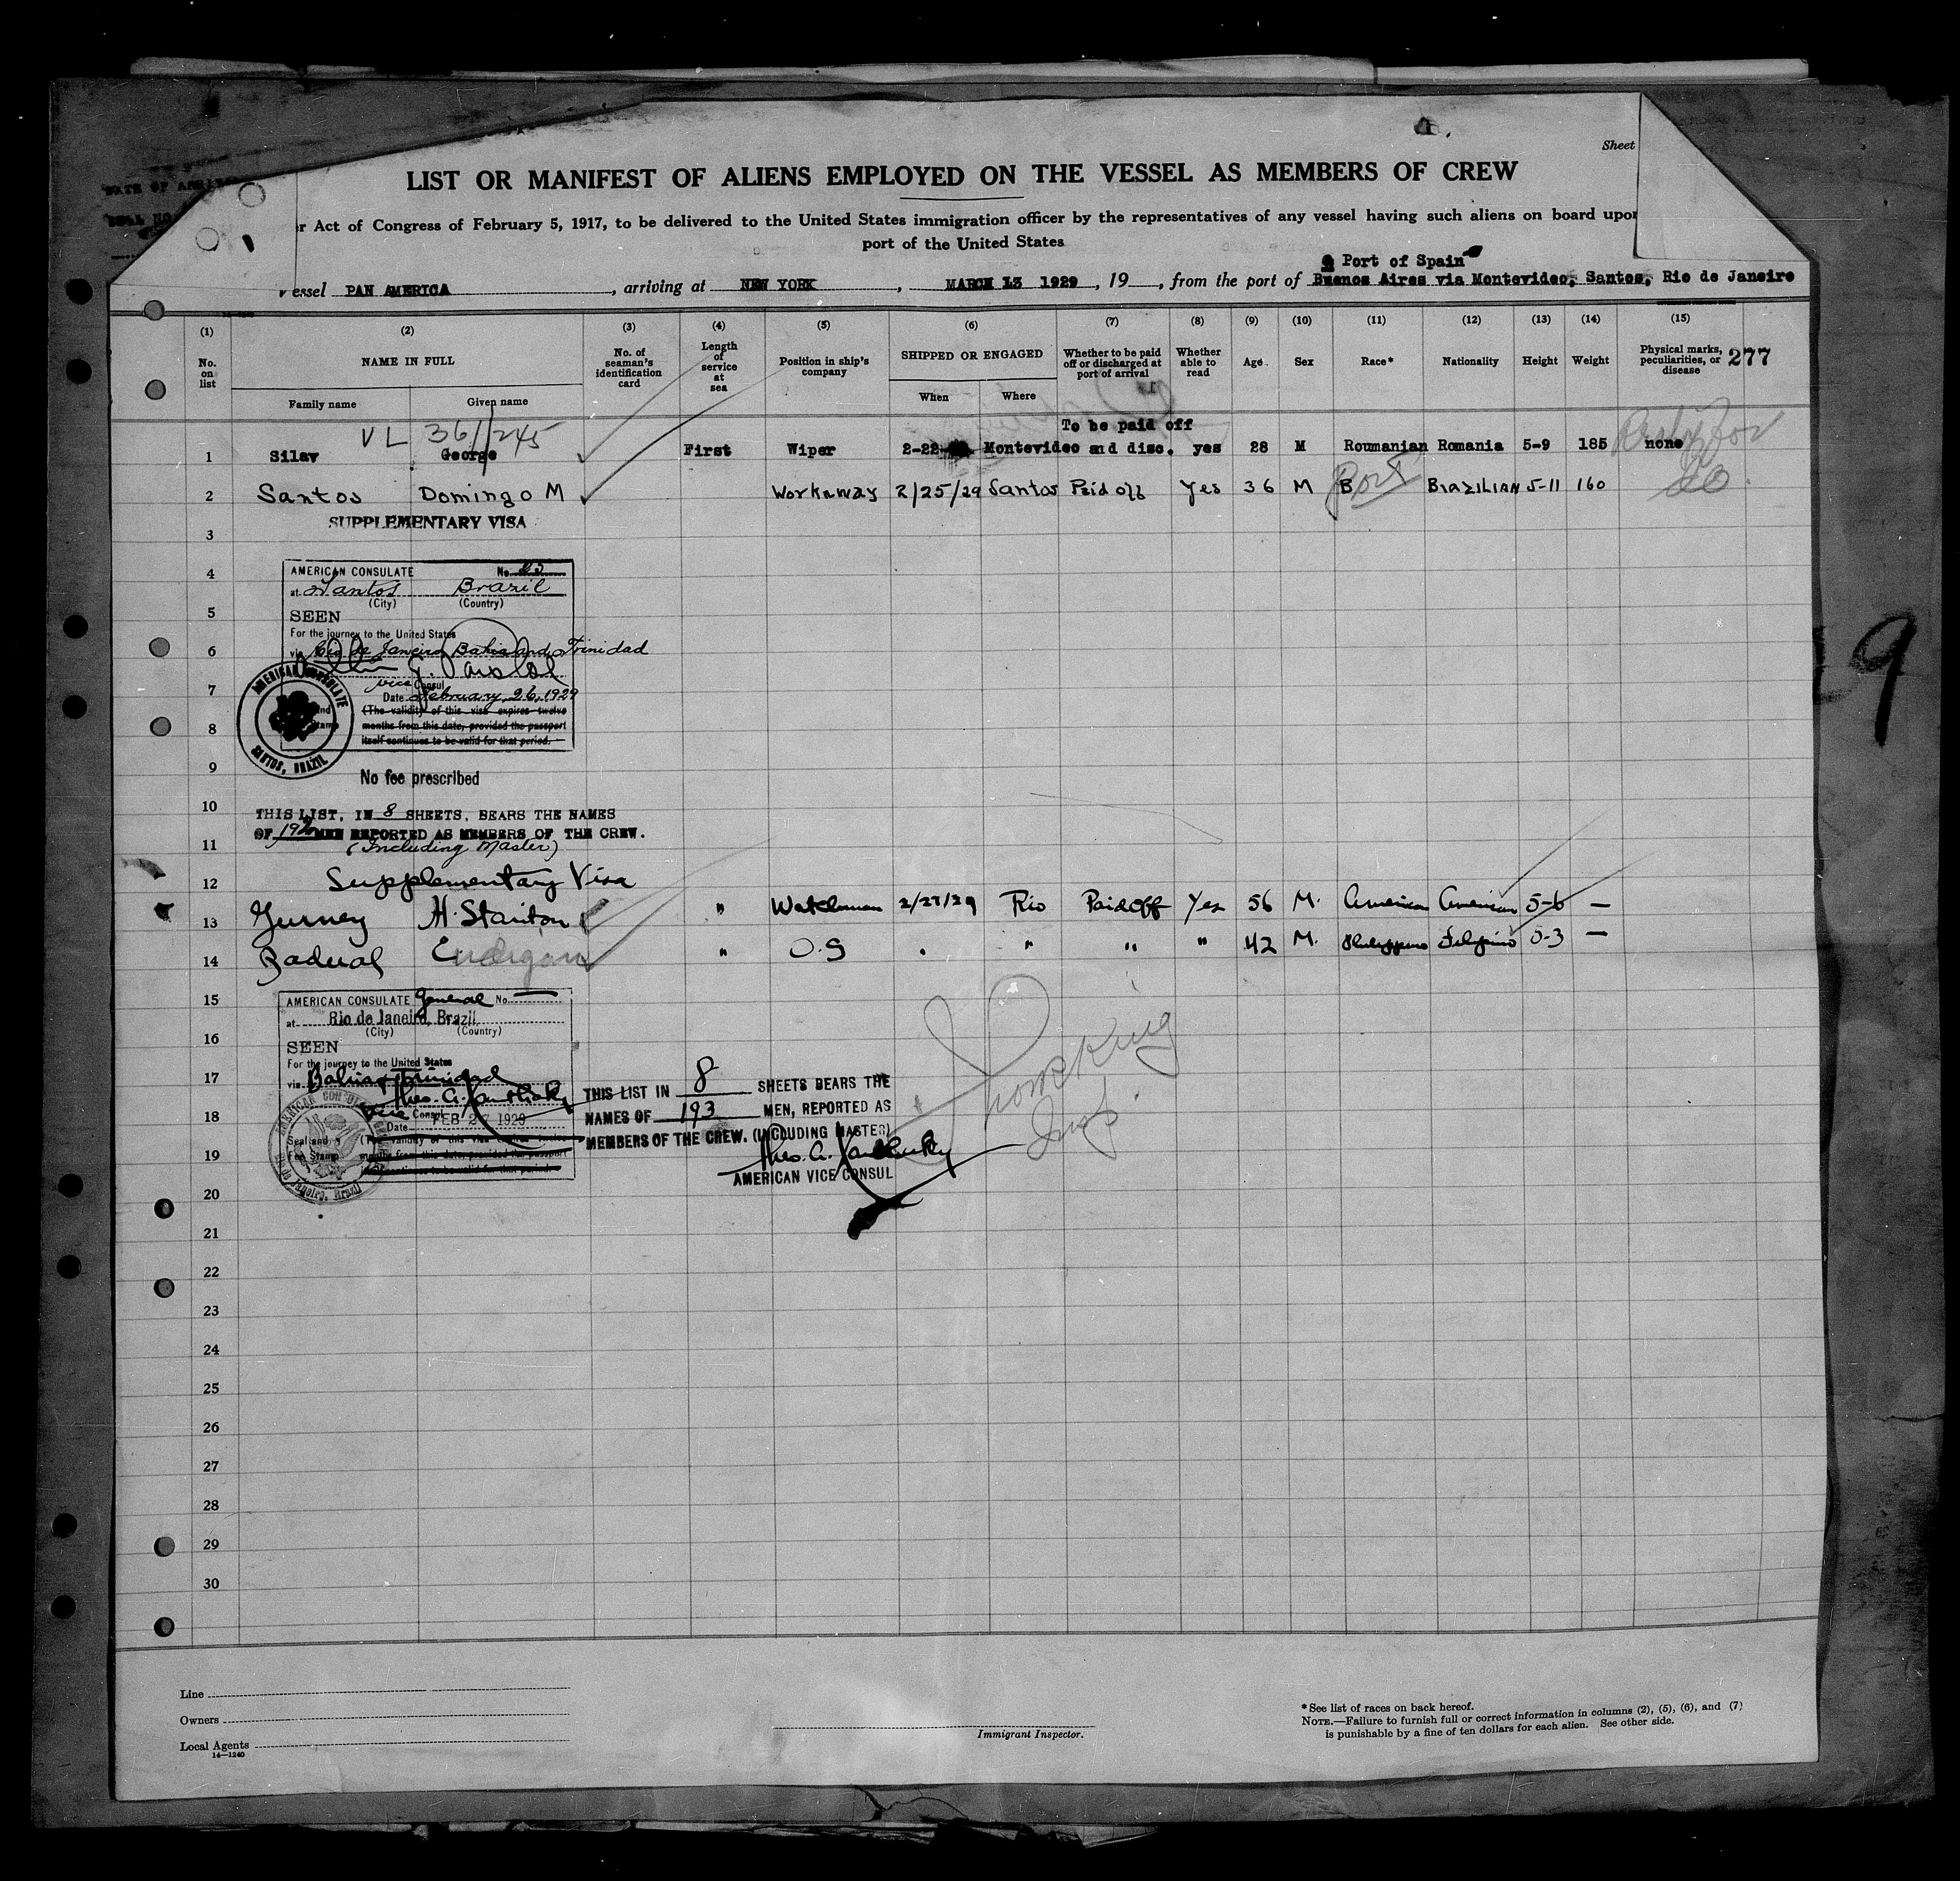 Sheet
LIST OR MANIFEST OF ALIENS EMPLOYED ON THE VESSEL AS MEMBERS OF CREW
r Act of Congress of February 5, 1917, to be delivered to the United States immigration officer by the representatives of any vessel having such aliens on board upon
port of the United States
Port of Spain
essel PAN AMERICA, arriving at NEW YORK, MARCH 13 1929, 19, from the port of Buenos Aires via Montevideo, Santos, Rio de Janeiro
(1) (2) (3) (4) (5) (6) (7) (8) (9) (10) (11) (12) (13) (14) (15)
No. on list
NAME IN FULL
Family name Given name
No. of seaman's identification card
Length of service at sea
Position in ship's company
SHIPPED OR ENGAGED
When Where
Whether to be paid off or discharged at port of arrival
Whether able to read
Age
Sex
Race*
Nationality
Height
Weight
Physical marks, peculiarities, or disease
277
VL 36//245
To be paid off
1 Silav George First Wiper 2-22 Montevideo and disc. yes 28 M Roumanian Romania 5-9 185 none
2 Santos Domingo M Workaway 2/25/29 Santos Paid off Yes 36 M B Port BRAZILIAN 5-11 160 do.
SUPPLEMENTARY VISA
3
4
AMERICAN CONSULATE No.
at Santos Brazil
(City) (Country)
5
SEEN
For the journey to the United States
6
via Rio de Janeiro, Bahia and Trinidad
vice Consul
7
Date February 26, 1929
(The validity of this visa expires twelve
8
months from this date, provided the passport
itself continues to be valid for that period.
AMERICAN CONSULATE
SANTOS, BRAZIL
9
No fee prescribed
10
THIS LIST, IN 8 SHEETS, BEARS THE NAMES
OF 192 MEN REPORTED AS MEMBERS OF THE CREW.
11
(Including Master)
12
Supplementary Visa
13 Gurney H. Stanton " Watchman 2/27/29 Rio Paid off Yes 56 M. American American 5-6 —
14 Badual " O.S " " " " 42 M. Philippino Filipino 5-3 —
15
AMERICAN CONSULATE General No. —
at Rio de Janeiro, Brazil
(City) (Country)
16
SEEN
For the journey to the United States
17
via Bahia & Trinidad
Vice Consul
18
Date FEB 27 1929
Seal and Fee Stamp
(The validity of this visa expires twelve
months from this date, provided the passport
Rio de Janeiro, Brazil
THIS LIST IN 8 SHEETS BEARS THE
NAMES OF 193 MEN, REPORTED AS
MEMBERS OF THE CREW. (INCLUDING MASTER)
AMERICAN VICE CONSUL
Insp.
19
20
21
22
23
24
25
26
27
28
29
30
9
Line
Owners
Local Agents
14—1240
Immigrant Inspector.
*See list of races on back hereof.
NOTE.—Failure to furnish full or correct information in columns (2), (5), (6), and (7)
is punishable by a fine of ten dollars for each alien. See other side.